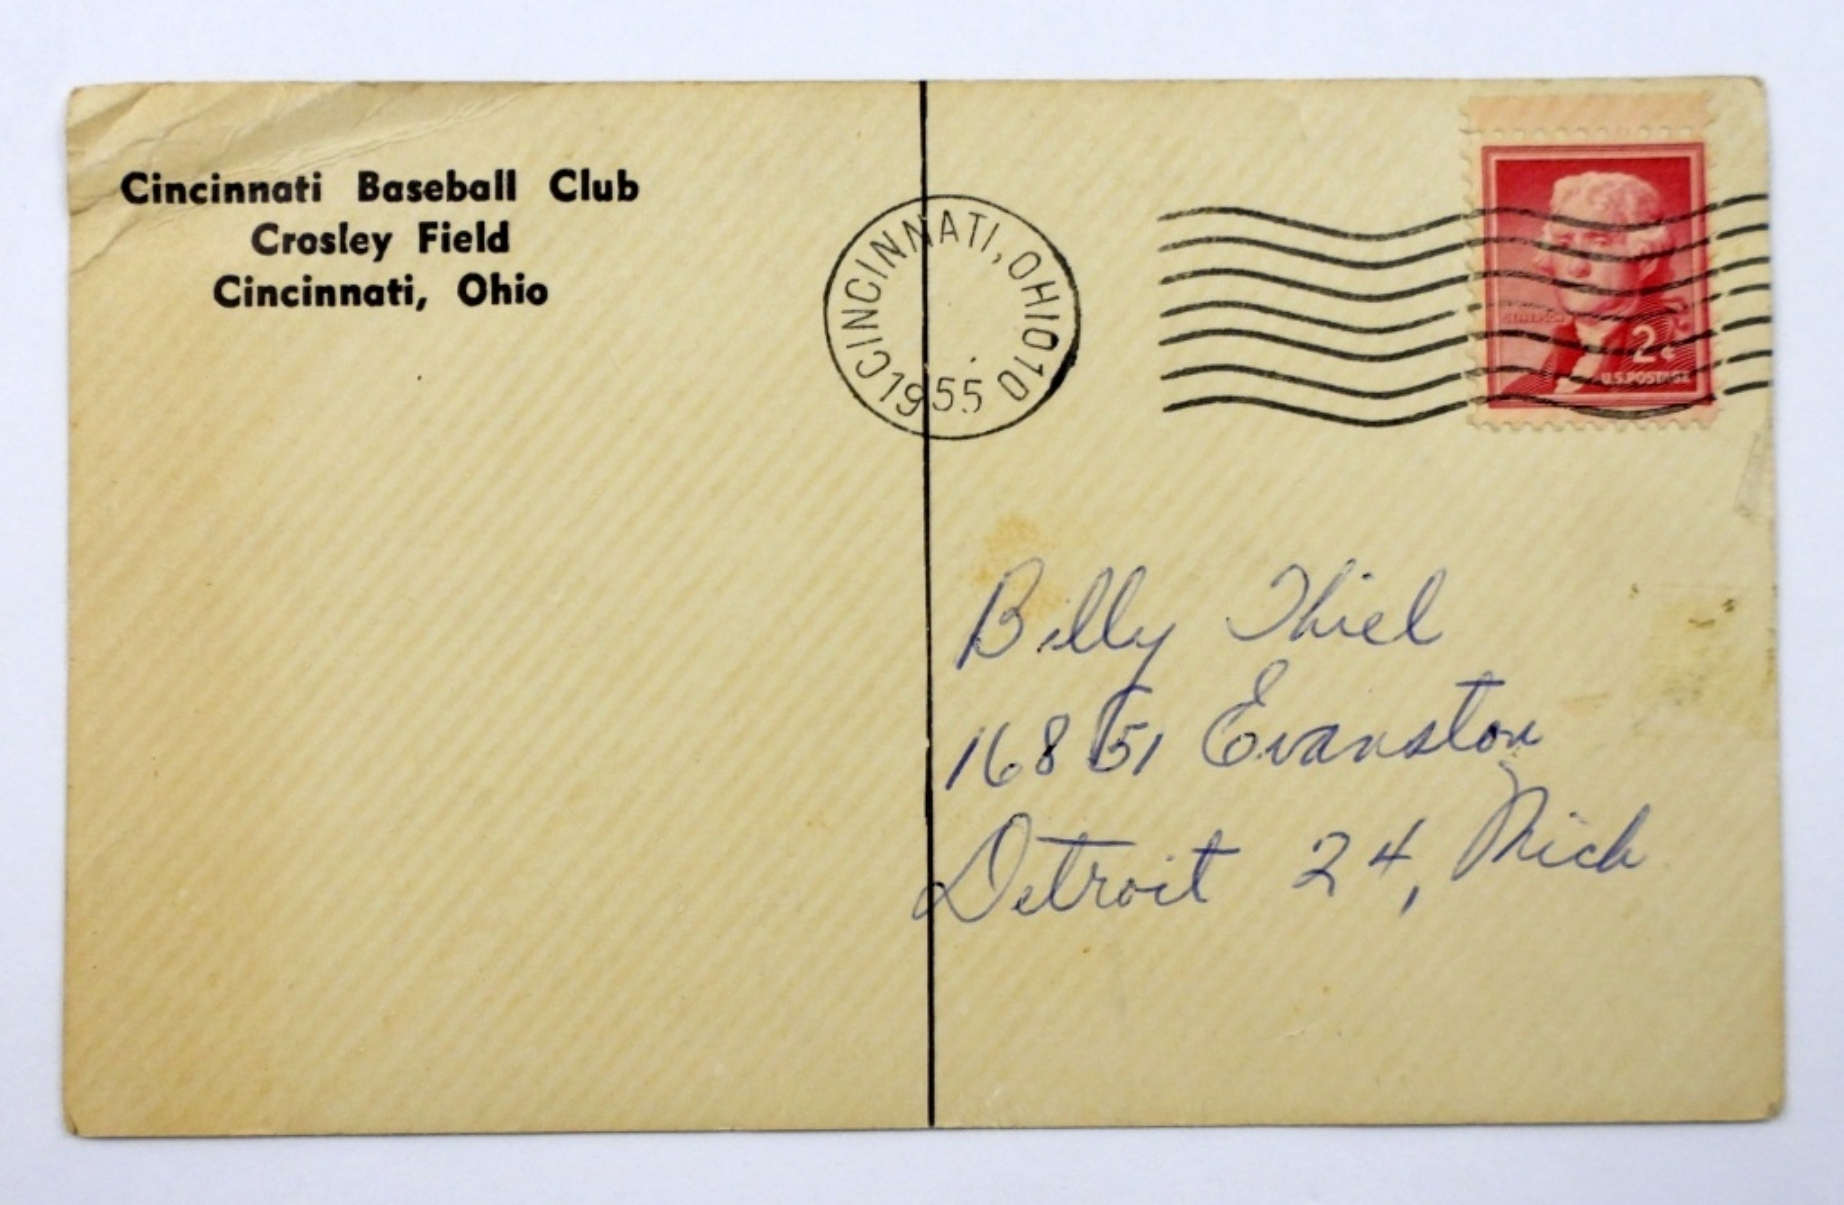 Cincinnati Baseball Club
Crosley Field
Cincinnati, Ohio
CINCINNATI, OHIO 10
1955
JEFFERSON
2¢
U.S. POSTAGE
Billy Thiel
16851 Evanston
Detroit 24, Mich